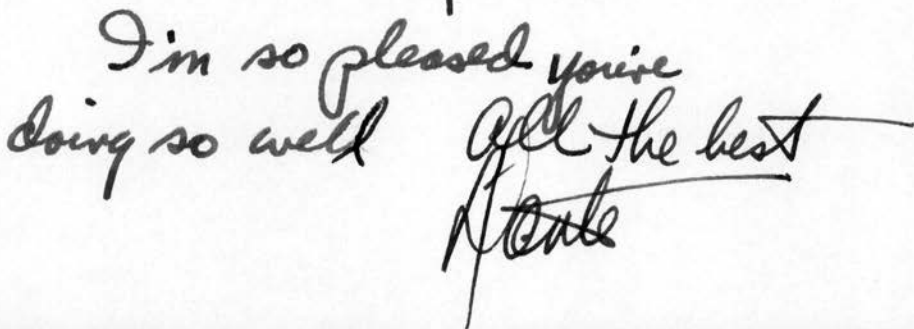 I'm so pleased you're
doing so well All the best